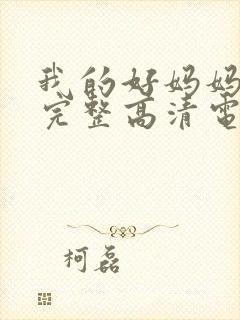 我的好妈妈
完整高清电
柯磊